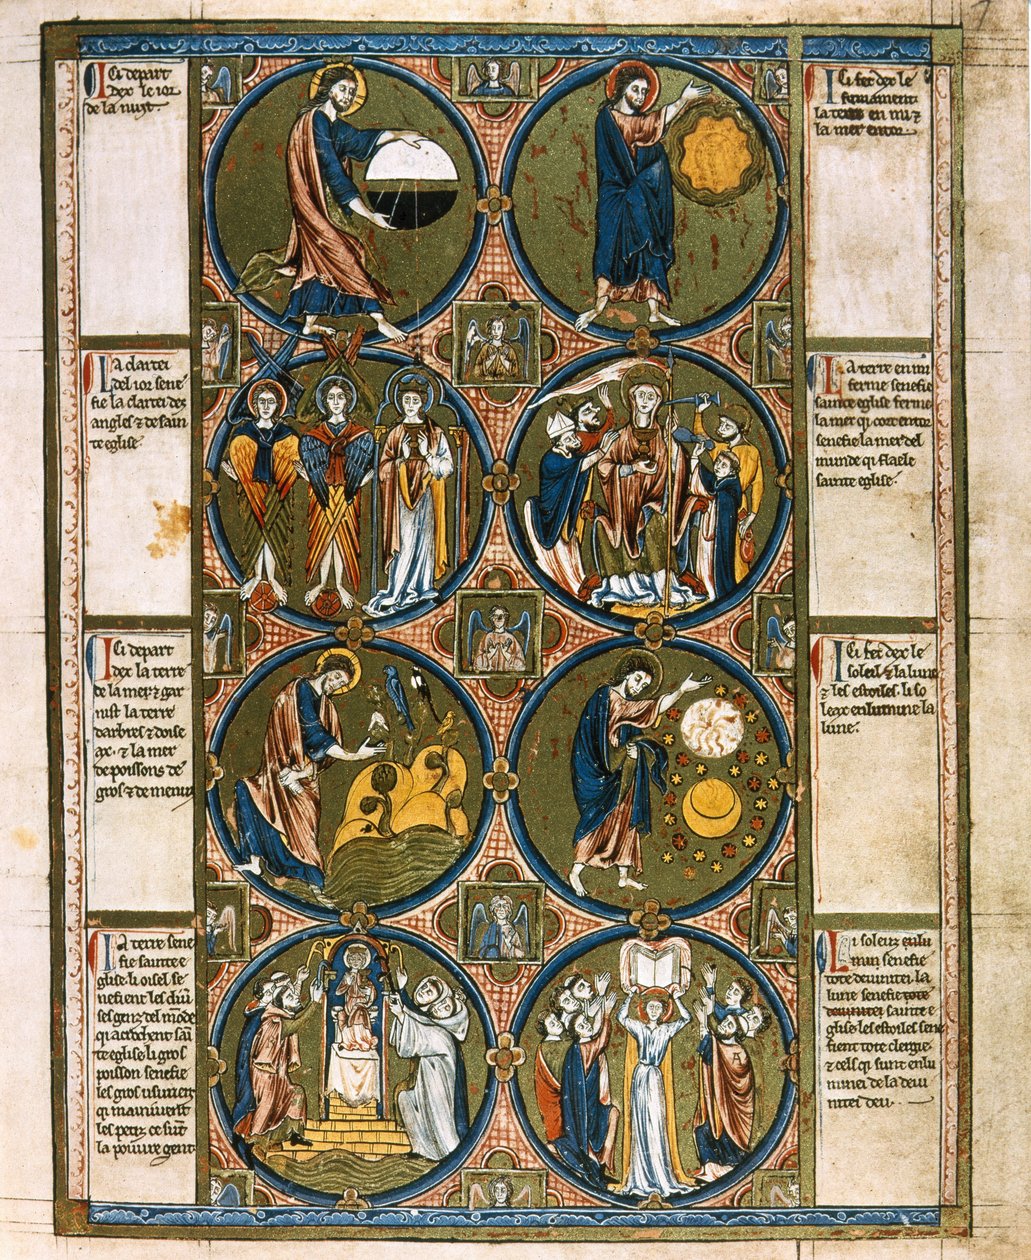 Ici depart
dex le ior
de la nuyt
La clartei
del ior sene
fie la clartei des
angles ⁊ de sain
te eglise
Ici depart
dex la terre
de la mer ⁊ gar
nist la terre
darbres ⁊ doise
ax. ⁊ la mer
de poissons de
gros ⁊ de menuz
La terre sene
fie sainte e
glise li oisel se
nefient les diu
ses genz del mōde
qi acrochent sain
te eglise li gros
poisson senefie
les gros usuriers
qi mainiuent
les petiz ce sunt
la povvre gent
Ici fet dex le
firmament
la terre en mi ⁊
la mer entor
La terre en mi
ferme senefie
sainte eglise ferme
la mer qi cort entor
senefie la mer del
munde qi flaele
sainte eglise.
Ici fet dex le
soleil ⁊ la lune
⁊ les estoiles li so
leax enlumine la
lune.
Li soleiz enlu
mine senefie
tote devinitei la
lune senefie tote
sainte e
glise les estoiles sene
fient tote clergie
⁊ cels qi sunt enlu
minei de la devi
nitei deu.